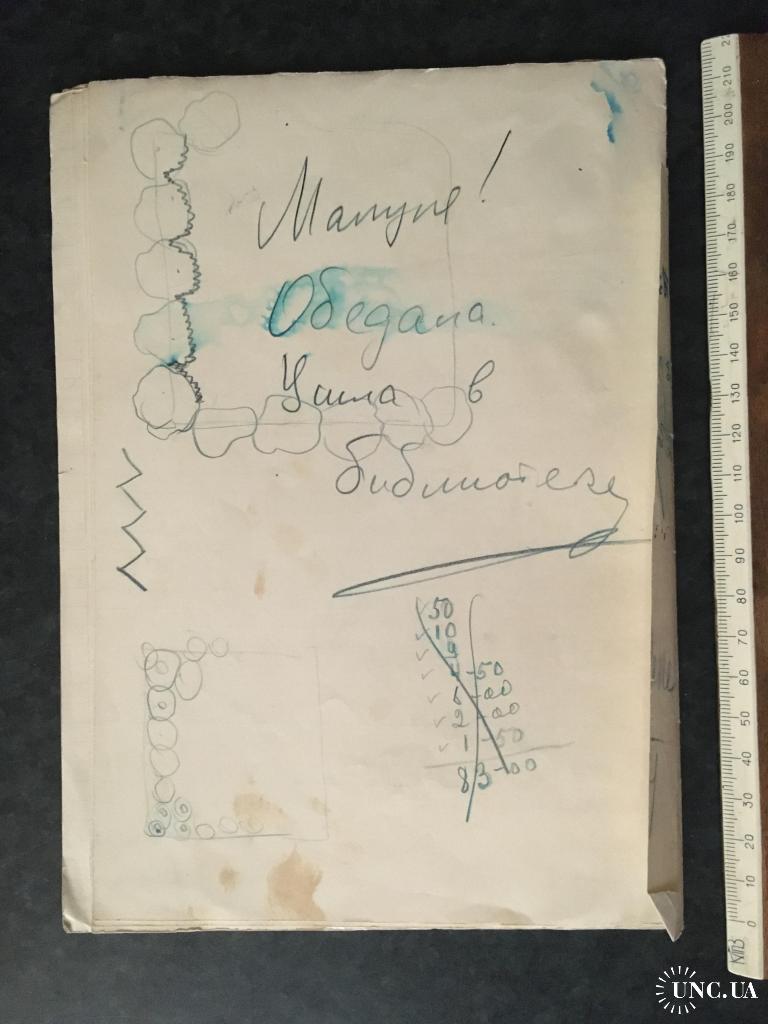 Мамуся!
Обедала.
Ушла в
библиотеку
50
10
-50
-00
2-00
1-50
83-00
220
210
200
190
180
170
160
150
140
130
120
110
100
90
80
70
60
50
40
30
20
10
0
UNC.UA